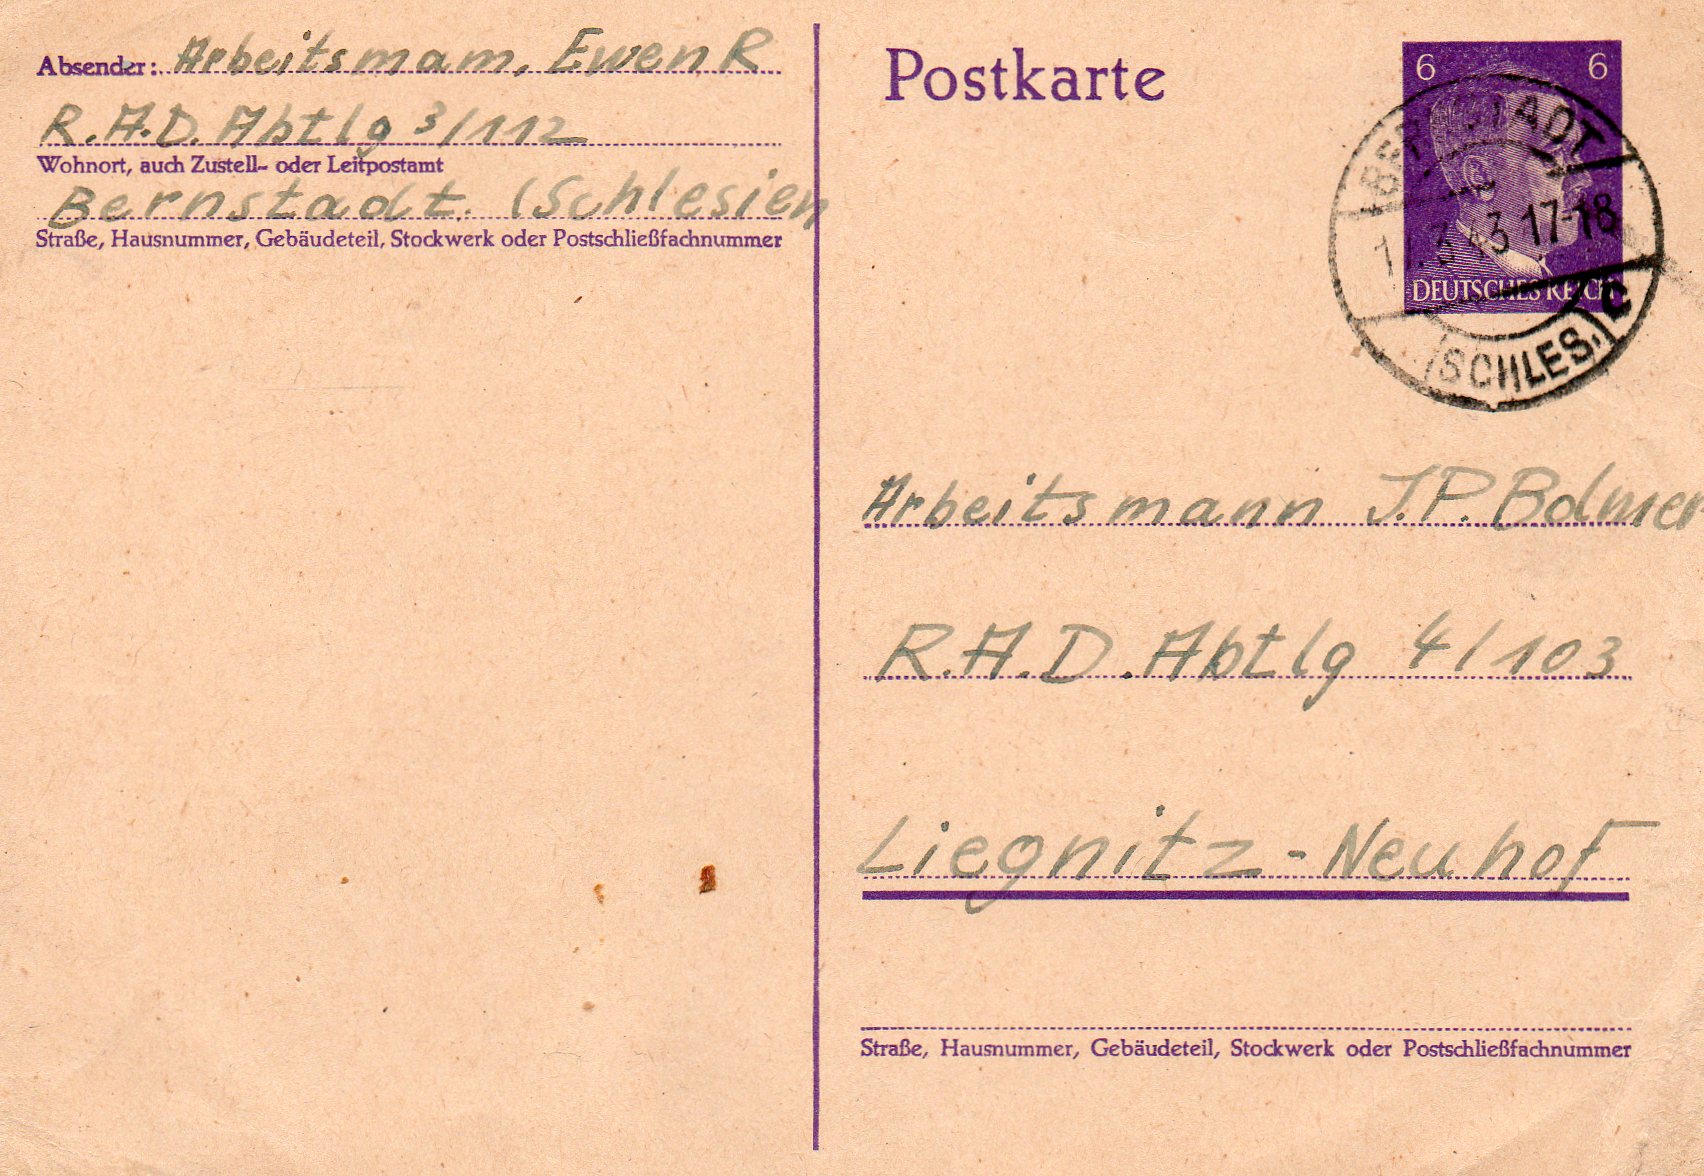 Absender: Arbeitsmam, Ewen R
R.A.D. Abtlg 3/112
Wohnort, auch Zustell- oder Leitpostamt
Bernstadt. (Schlesien
Straße, Hausnummer, Gebäudeteil, Stockwerk oder Postschließfachnummer
Postkarte
6 6
DEUTSCHES REICH
BERNSTADT
.3.43 17-18
(SCHLES.) C
Arbeitsmann J.P. Bolmer
R.A.D. Abtlg 4/103
Liegnitz-Neuhof
Straße, Hausnummer, Gebäudeteil, Stockwerk oder Postschließfachnummer